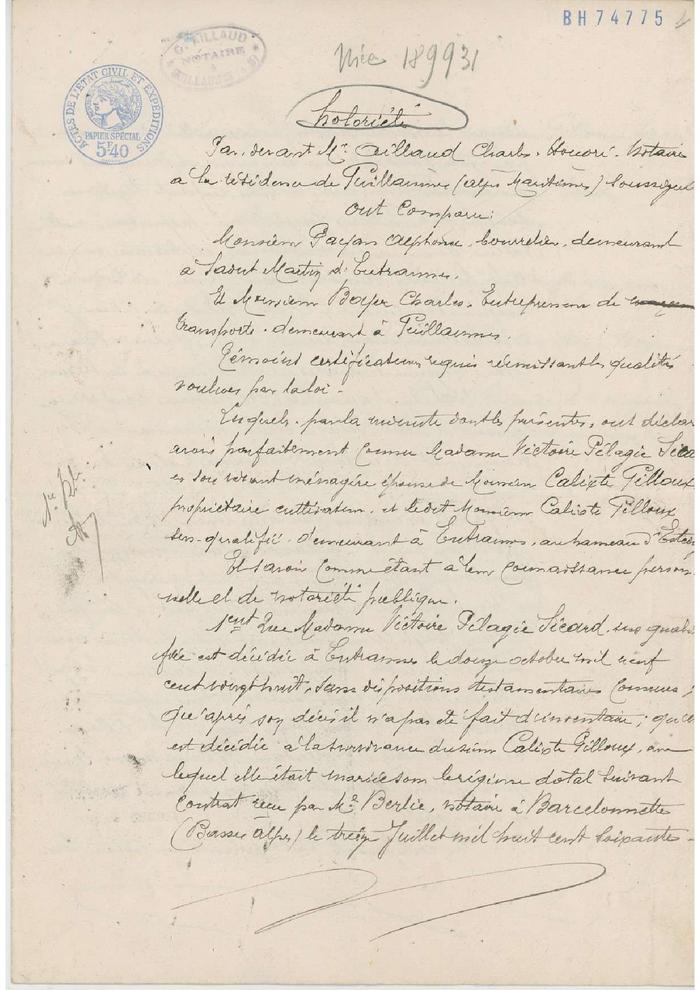 BH74775
AILLAUD
NOTAIRE
ACTES DE L'ÉTAT CIVIL ET EXPÉDITIONS
PAPIER SPÉCIAL
5F40
Nice 189931
Notoriété
Par devant Me Aillaud Charles Honoré Notaire
à la résidence de Guillaumes (Alpes Maritimes) soussigné
ont comparu:
Monsieur Payan Alphonse, bourrelier, demeurant
à Saint Martin d'Entraunes.
Et Monsieur Boyer Charles, Entrepreneur de
transports, demeurant à Guillaumes.
Témoins certificateurs requis réunissant les qualités
voulues par la loi.
Lesquels, par la minute dont les présentes, ont déclar
avoir parfaitement connu Madame Victoire Pélagie Sica
en son vivant ménagère épouse de Monsieur Calixte Gilloux
propriétaire cultivateur, et ledit Monsieur Calixte Gilloux
sus-qualifié, demeurant à Entraunes, au hameau d'
Et savoir comme étant à leur connaissance person
nelle et de notoriété publique.
1ent Que Madame Victoire Pélagie Sicard, sus quali
fiée est décédée à Entraunes le douze octobre mil neuf
cent vingt huit, sans dispositions testamentaires connues;
qu'après son décès il n'a pas été fait d'inventaire; qu'
est décédée à la survivance du sieur Calixte Gilloux, av
lequel elle était mariée sous le régime dotal suivant
contrat reçu par Me Berlie, notaire à Barcelonnette
(Basses Alpes) le treize Juillet mil huit cent soixante-